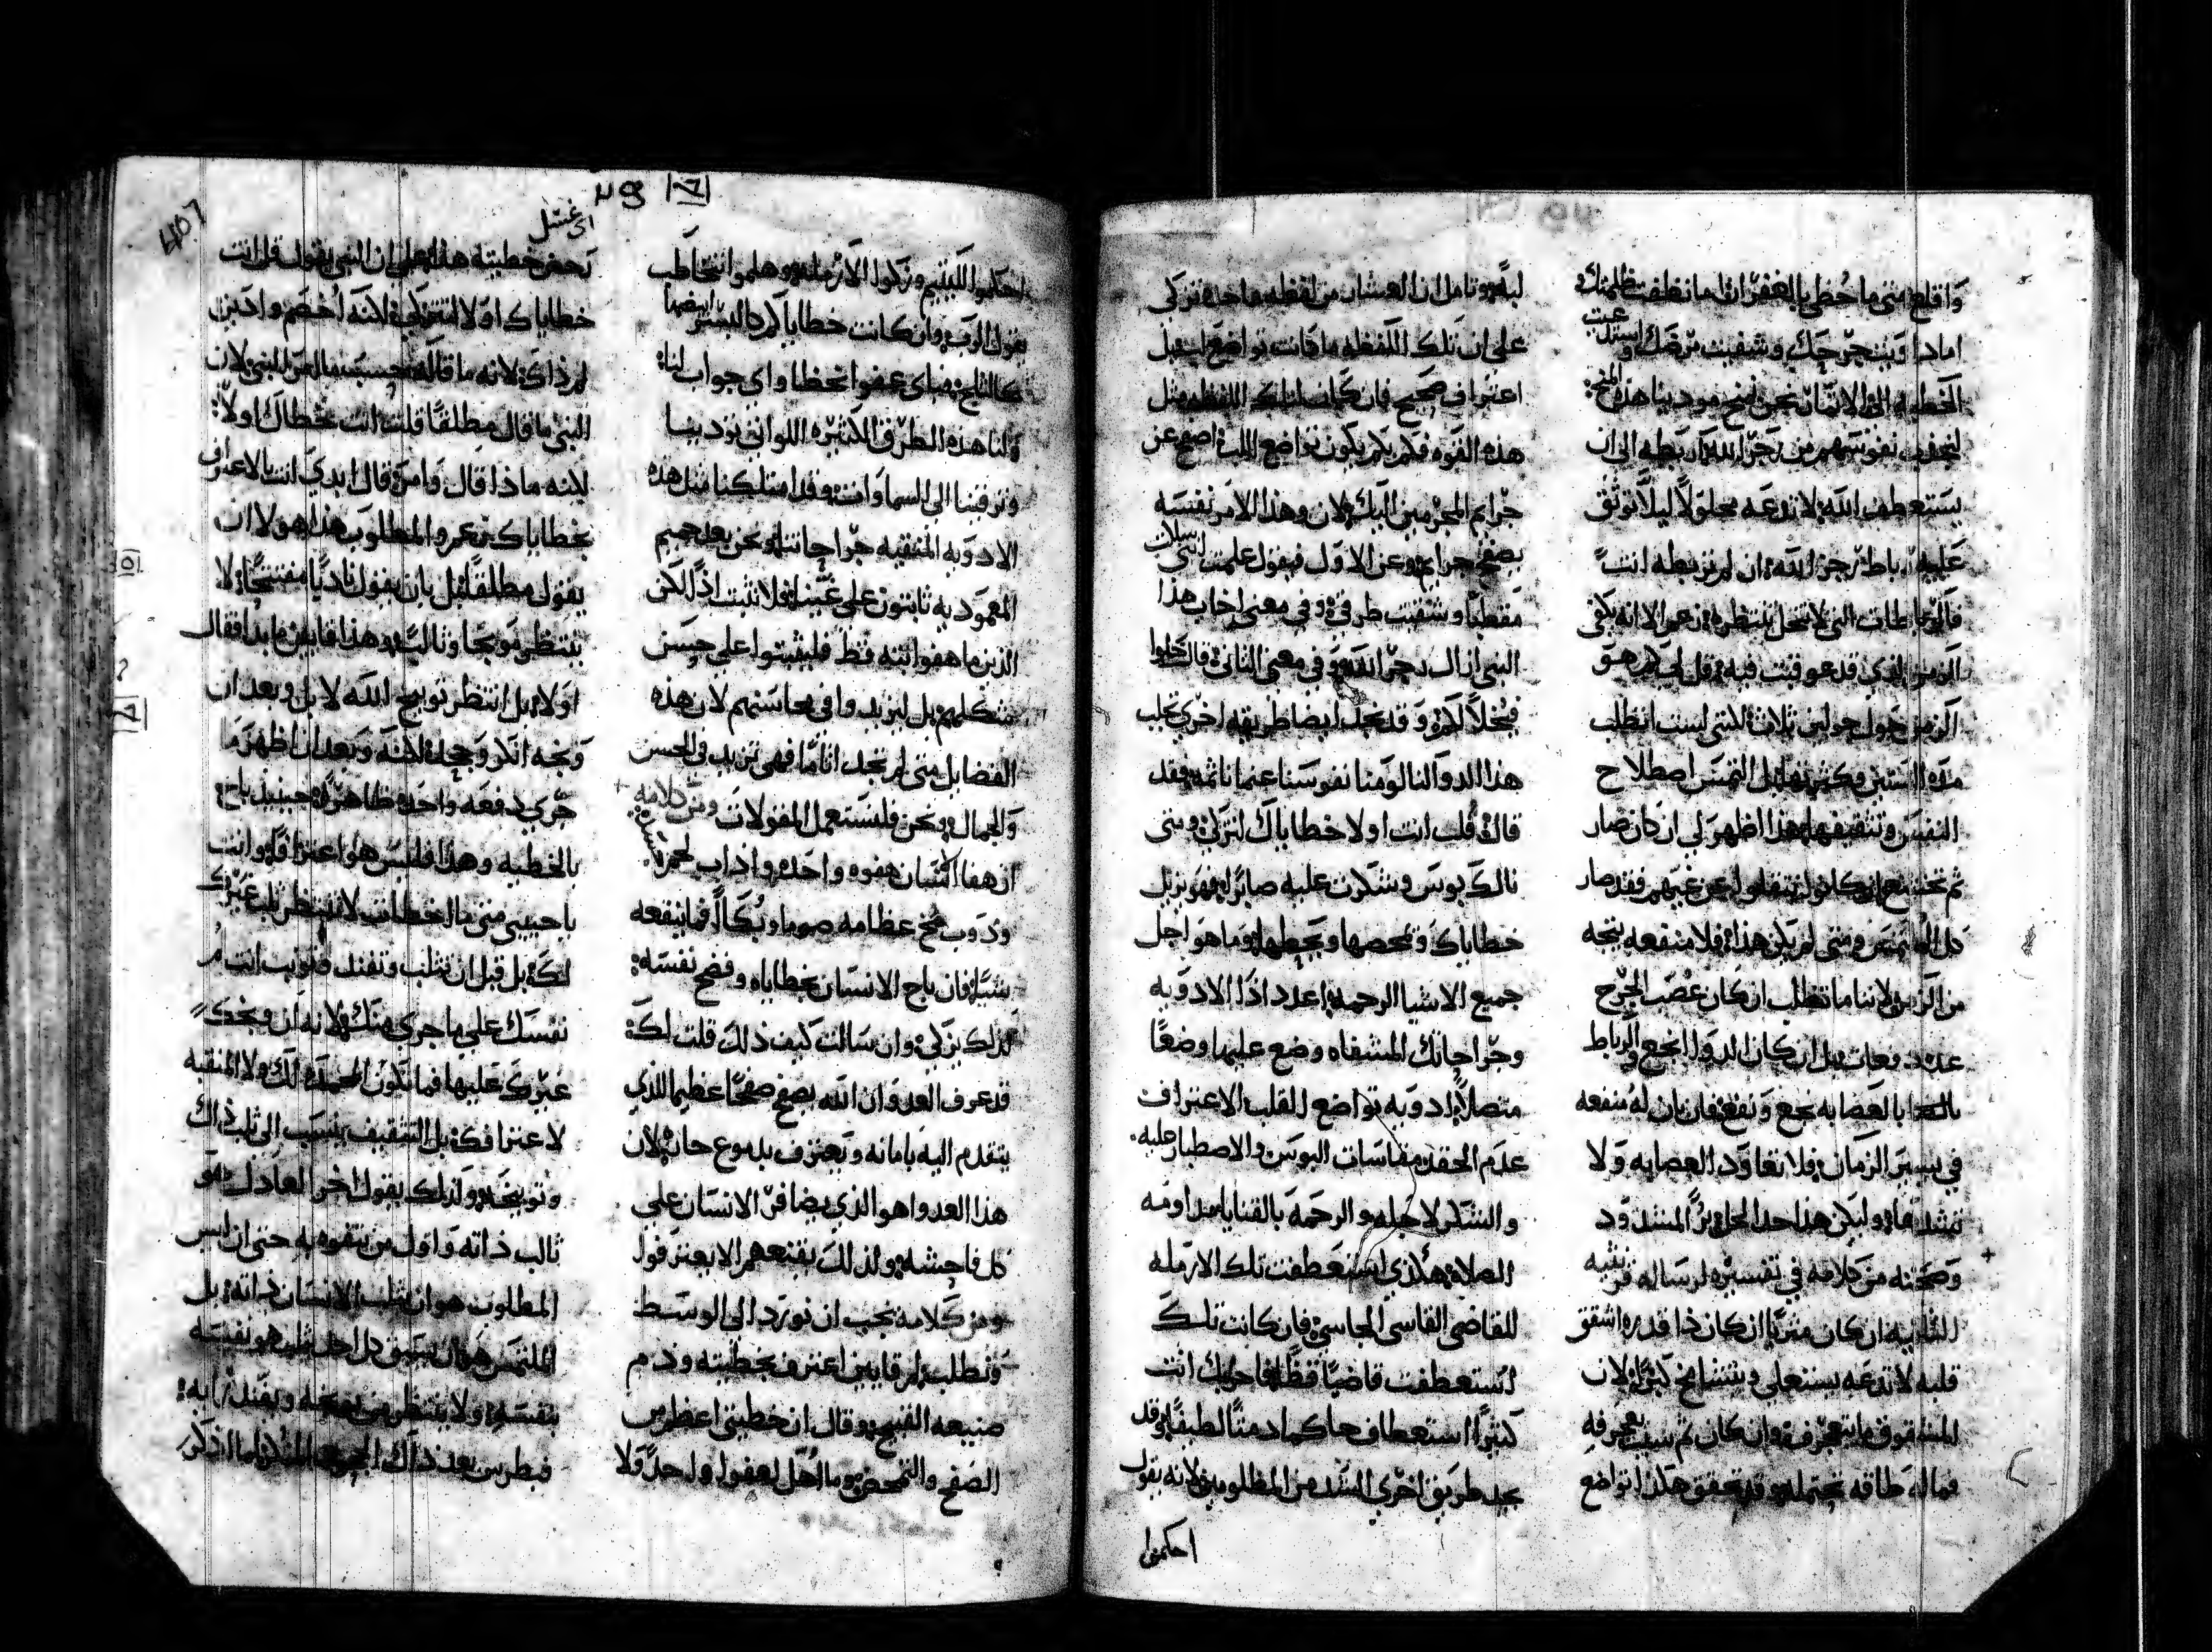 واقلع متى ما حُظي بالغفران اما نظفت ظلمتك
امادا وبنجرحك وشفيت مرضك
الخطيه الى الاتمان نحن نمنح مودبنا هذه المنح
لنجذب نفوسهم من رجز الله ان ربطه الى ان
يستعطف الله لا تدعه محلولا ليلا توثق
عليه رباط رجز الله ان لم تربطه انت
فالرباطات التي لا تنحل تنتظره
الزمن الذي قد عوقبت فيه قل لي كم هو
الزمن حول حولين ثلاثه لكنني لست اطلب
مدة السنين وكثرتها بل التمس اصطلاح
النفس وتثقيفها هذا اظهر لي ان كان صار
ثم تخشع ان كانوا انتقلوا عن غيهم فقد صار
كل الملتمس ومتى لم يكن هذا فلا منفعه ينتجه
من الزمن لاننا ما نطلب ان كان عُصب الجرح
عدد دفعات بل ان كان الدوا انجع والرباط
بالعصابه نجع ونفع فان كان له منفعه
في يسير الزمان فلا تعاود العصابه ولا
تشدها وليكن هذا حد الحل برء المشدود
وصحته من كلامه في تفسيره لرساله قرنثيه
الثانيه ان كان مثريا ان كان ذا قدره اشقق
قلبه لا تدعه يستعلي ويتشامخ كثيرا لان
المشقوق ما يتعجرف وان كان ثم تثبت بعجرفه
فما له طاقه تحتمله وقد تحقق هكذا تواضع
لبه وتامل ان العشار من لفظه واحده تزكى
على ان تلك اللفظه ما كانت تواضعا بل
اعتراف صحيح فان كان لتلك اللفظه مثل
هذه القوه فكم بكم يكون تواضع اللب اصفح عن
جرايم المجرمين اليك لان وهذا الامر نفسه
يصفح جرايم وعن الاول فيقول علمت انني
مقطبا وشفيت طرقه وفي معنى اخاب هذا
النبي ازال رجز الله وفي معنى الثاني قال حلوا
فيُحلّ لكم وقد نجد ايضا طريقه اخرى تجلب
هذا الدوا لنا لومنا نفوسنا عما ناثمه فقد
قال قُلت انت اولا خطاياك لتزكى ومتى
نالك بوس وشكرت عليه صابرا فهو يزيل
خطاياك وتمحصها ويحطها وما هو اجل
جميع الاشيا الرحمه اعدد اذا الادويه
وجراحاتك المشفاه وضع عليها وضعا
متصلا ادويه تواضع القلب الاعتراف
عدم الحقد مقاسات البوس والاصطبار عليه
والشكر لاجله والرحمه بالقنايا مداومه
الصلاه هكذي استعطفت تلك الارمله
للقاضي القاسي الجاسي فان كانت تلك
استعطفت قاضيا فظا فاحرى بك انت
كثيرا استعطاف حاكما دمثا لطيفا وقد
نجد طريق اخرى الشد من المظلومين لانه يقول
احكموا
احكموا لليتيم وزكوا الارمله وهلموا نتخاطب
يقول الرب وان كانت خطاياكم كالبستر ابيضها
كالثلج فباي عفو نحظا واي جواب لنا
ولنا هذه الطرق الكثيره اللواتي تودينا
وترقينا الى السماوات وقد امتلكنا مثل هذه
الادويه المنقيه جراحاتنا ونحن بعد جميم
المعموديه ثابتون على غينا فلا نثبت اذا لكن
الذين ما هفوا البته قط فليثبتوا على حسن
شكلهم بل ليزيدوا في محاسنهم لان هذه
الفضايل متى لم تجد اثاما فهي تزيد في الحسن
والجمال ونحن فلنستعمل المقولات ومن كلامه
ان هفا انسان هفوه واحده واذاب لحمه
وذوب مخ عظامه صوما وبكا فما ينفعه
شيا فان باح الانسان بخطاياه وفضح نفسه
لذلك يزكى وان سالت كيف ذلك قلت لك
قد عرف العدو ان الله يصفح صفحا عظيما للذي
يتقدم اليه بامانه ويعترف بدموع حاره لان
هذا العدوا هو الذي يضافر الانسان على
كل فاحشه ولذلك يقنعهم الا يعترفوا
ومن كلامه يجب ان نورد الى الوسط
ونطلب ام قايين اعترف بخطيته وذم
صنيعه القبيح وقال ان خطيتي اعظم من
الصفح والتمحص وما اُهل لعفو ولا حد ولا
٢٩ ١٦
اي غسل
تحض خطيته هذا على ان النبي يقول قل انت
خطاياك اولا لتتزكى لكنه اُخصم وادين
لم ذاك لانه ما قاله حسبما امر النبي لان
النبي ما قال مطلقا قلت انت خطاك اولا
لكنه ماذا قال وامر قال ابدي انت بالاعتراف
بخطاياك والمطلوب هذا هو لا ان
يقول مطلقا بل بان يقول باديا مفتتحا لا
ينتظر موبخا وثالبا وهذا قايين ما بدا فقال
اولا بل انتظر توبيخ الله لا بل وبعد ان
وبخه انكر وجحد لكنه وبعد ان اظهر ما
جرى دفعه واحده ظاهرا حينيذ باح
بالخطيه وهذا فليس هو اعترافا وانت
يا حبيبي متى ما اخطات لا تنتظر ثلب غيرك
لك بل قبل ان تثلب وتفند فتوبيت انت لُم
نفسك على ما جرى منك لانه ان وبخك
غيرك عليها فما تكون المحمده لك ولا المنقبه
لاعترافك بل التثقيف ينسب الى ثلب ذاك
وتوبيخه ولذلك يقول اخر العادل هو
ثالب ذاته واول من يتفوه به حتى ان ليس
المطلوب هو ان يثلب الانسان ذاته بل
الملتمس هو ان يسبق كل احد ثلب هو نفسه
بنفسه ولا ينتظر من يوبخه ويفند رايه
فبطرس بعد ذاك الجحود المنكر لما اذكر